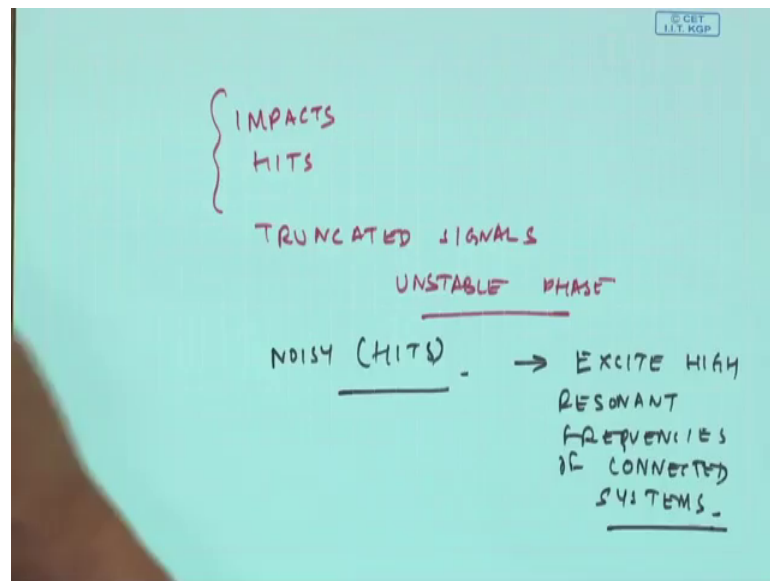 © CET
I.I.T. KGP
IMPACTS
HITS
TRUNCATED SIGNALS
UNSTABLE PHASE
NOISY (HITS). → EXCITE HIGH
RESONANT
FREQUENCIES
OF CONNECTED
SYSTEMS.